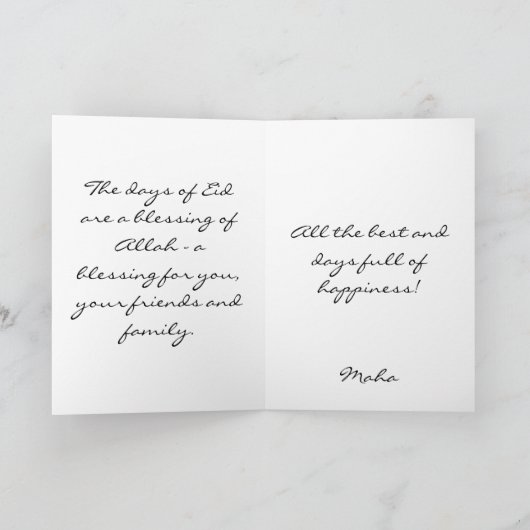 The days of Eid
are a blessing of
Allah - a
blessing for you,
your friends and
family.
All the best and
days full of
happiness!
Maha